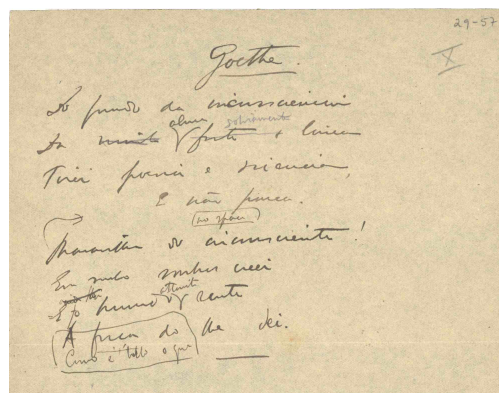 29-57
X
Goethe.
Do fundo da inconsciencia
Da alma sobriamente louca
Tirei poesia e sciencia,
E não pouca.
Maravilha do inconsciente!
Em sonho sonhos creei
mundo attonito sente
A força do que lhe dei.
Como é bello o que